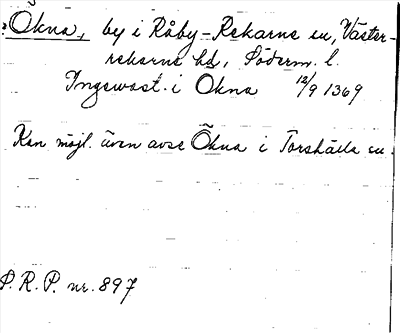 Ökna, by i Råby-Rekarne sn, Väster-
rekarne hd, Söderm. l.
Ingewast i Okna 12/9 1369
Kan möjl. även avse Ökna i Torshälla sn.
P.R.P. nr. 897